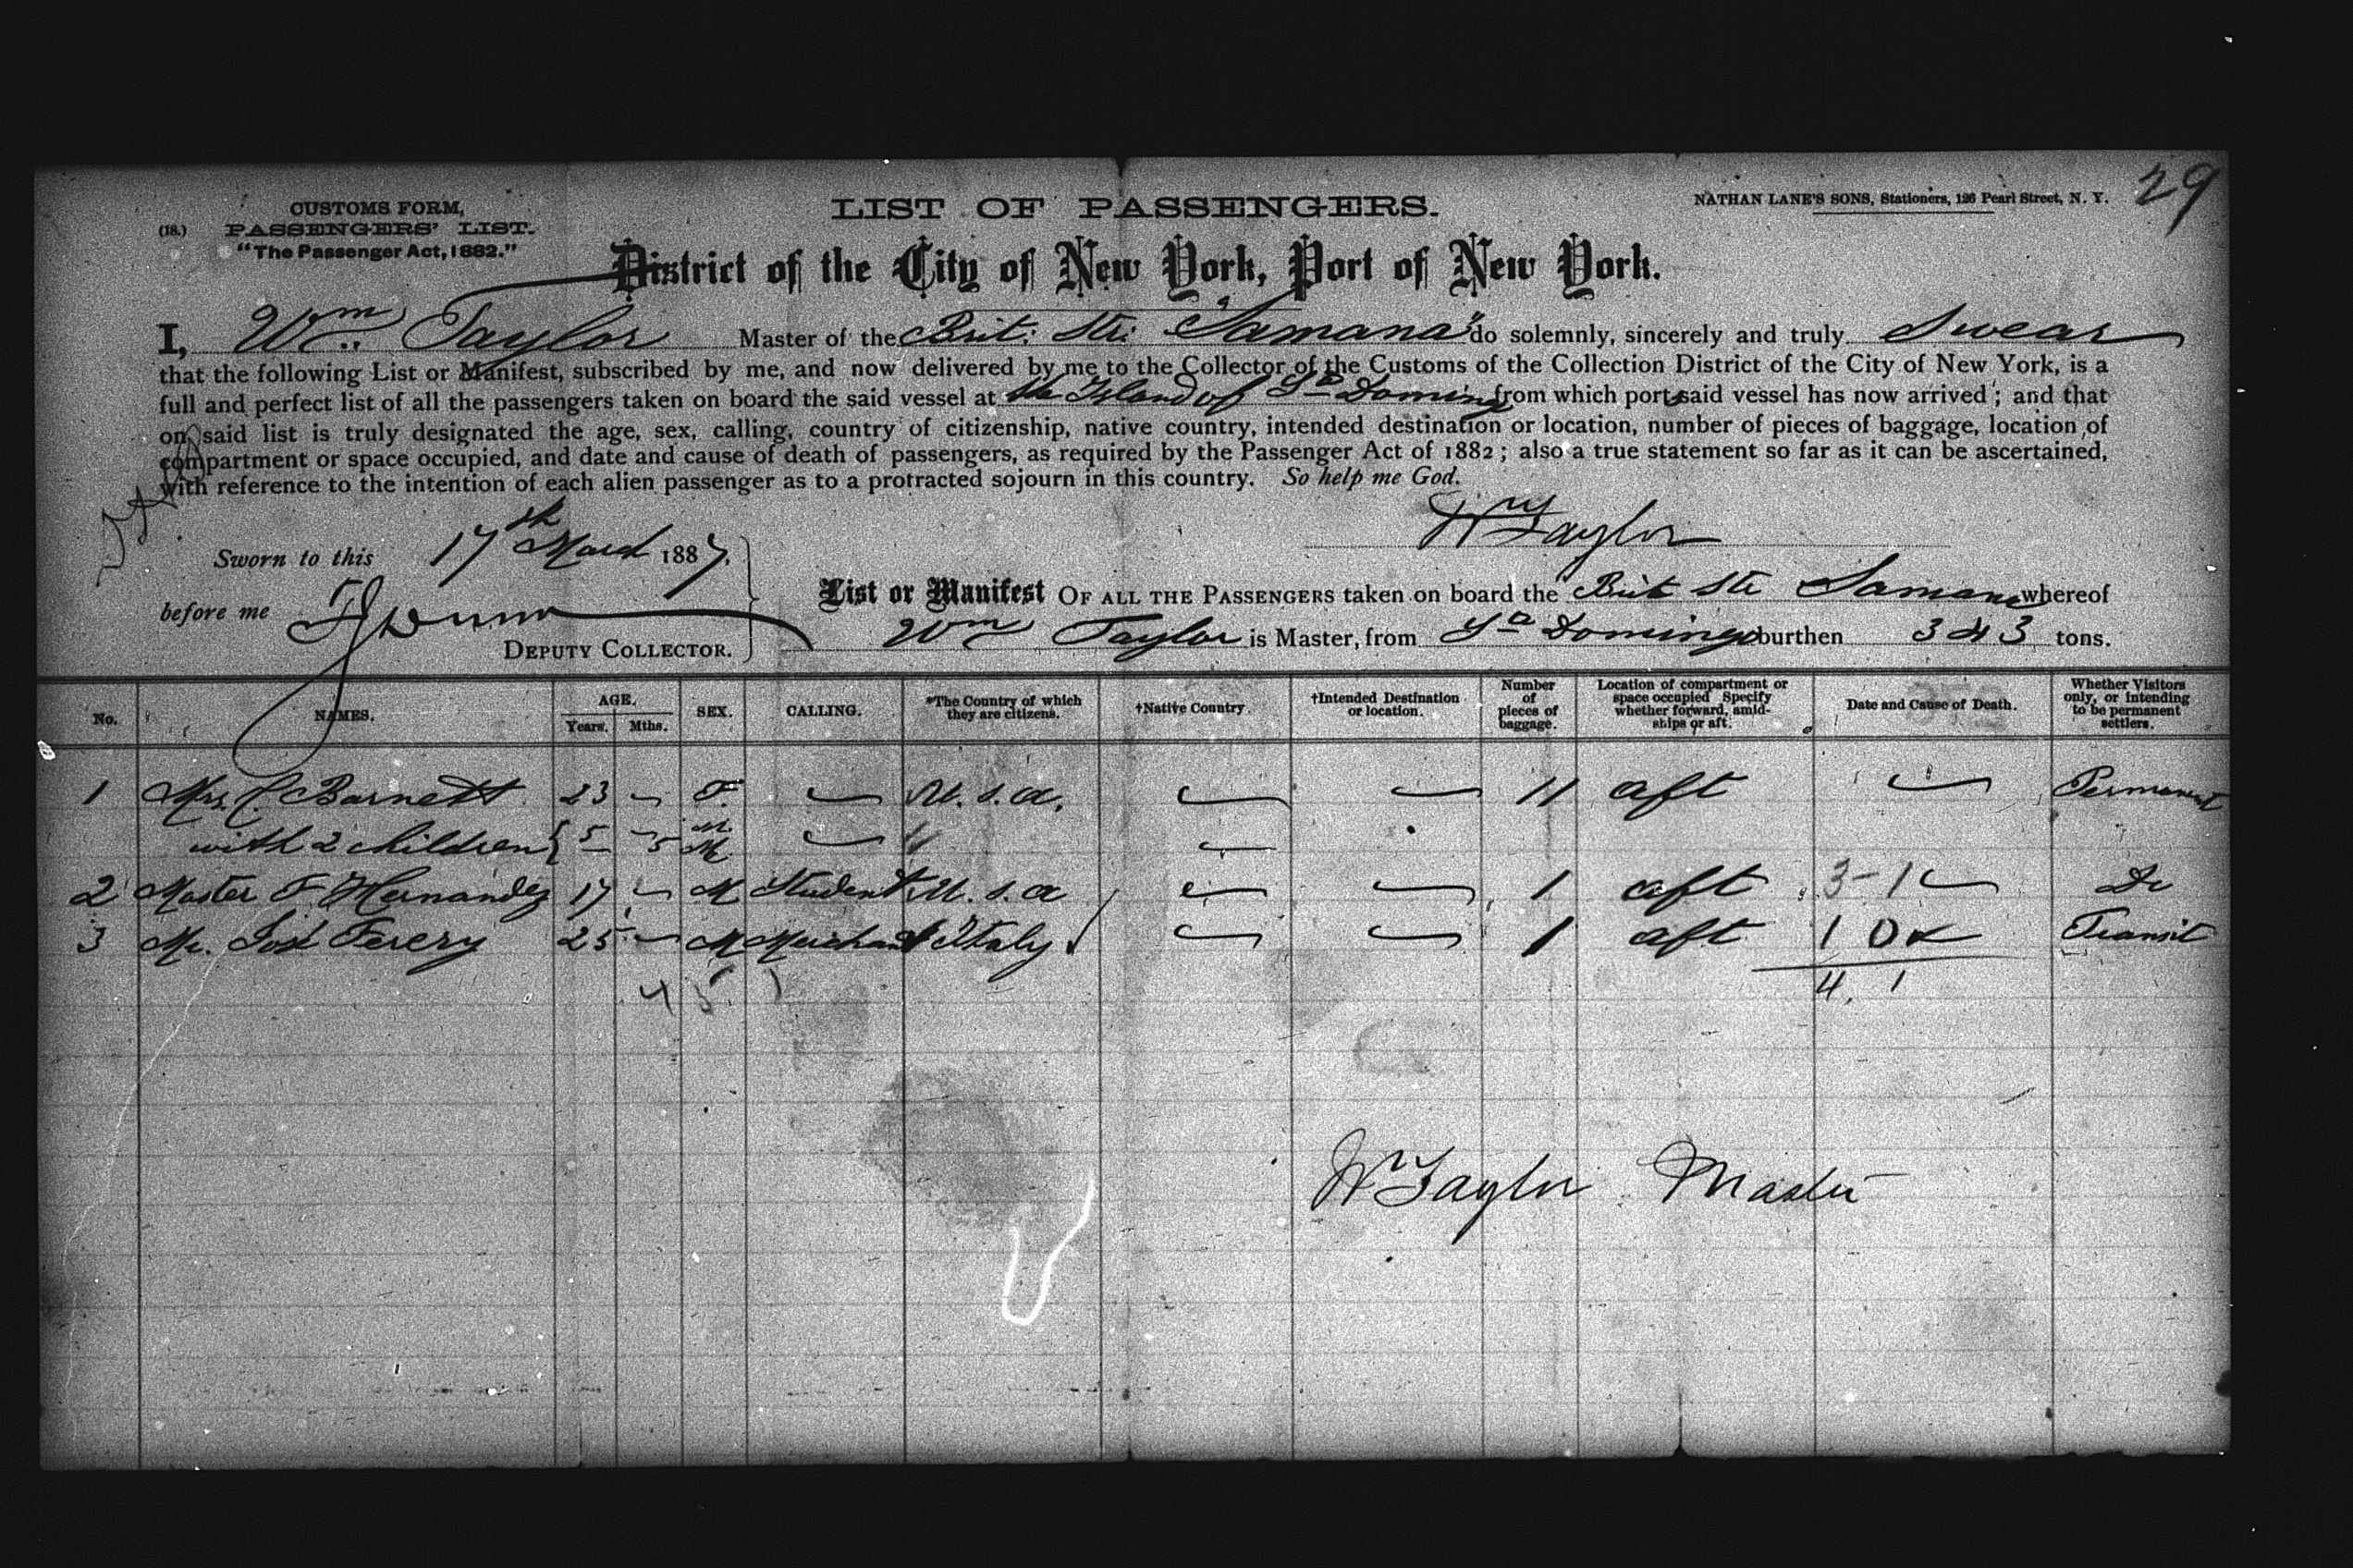 29
CUSTOMS FORM,
(18.) PASSENGERS' LIST.
"The Passenger Act, 1882."
LIST OF PASSENGERS.
NATHAN LANE'S SONS, Stationers, 126 Pearl Street, N. Y.
District of the City of New York, Port of New York.
I, Wm. Taylor Master of the Brit: Str: "Samana" do solemnly, sincerely and truly Swear
that the following List or Manifest, subscribed by me, and now delivered by me to the Collector of the Customs of the Collection District of the City of New York, is a
full and perfect list of all the passengers taken on board the said vessel at the Island of Sto Domingo from which ports said vessel has now arrived; and that
on said list is truly designated the age, sex, calling, country of citizenship, native country, intended destination or location, number of pieces of baggage, location of
compartment or space occupied, and date and cause of death of passengers, as required by the Passenger Act of 1882; also a true statement so far as it can be ascertained,
with reference to the intention of each alien passenger as to a protracted sojourn in this country. So help me God.
Wm Taylor
Sworn to this 17th March 1887.
before me
DEPUTY COLLECTOR.
List or Manifest OF ALL THE PASSENGERS taken on board the Brit Str Samana whereof
Wm Taylor is Master, from Sto Domingo burthen 343 tons.
No. NAMES. AGE. Years. Mths. SEX. CALLING. *The Country of which they are citizens. †Native Country. †Intended Destination or location. Number of pieces of baggage. Location of compartment or space occupied Specify whether forward, amidships or aft. Date and Cause of Death. Whether Visitors only, or intending to be permanent settlers.
1 Mrs. C. Barnett 23 F. U.S.A. 11 aft Permanent
with 2 children { 5 5 M. M
2 Master F. Hernandez 17 M Student U.S.A 1 aft 3-1 Do
3 Mr. José Ferery 25 M Merchant Italy 1 aft 1 0 Transit
4 5 1 4, 1
W Taylor Master